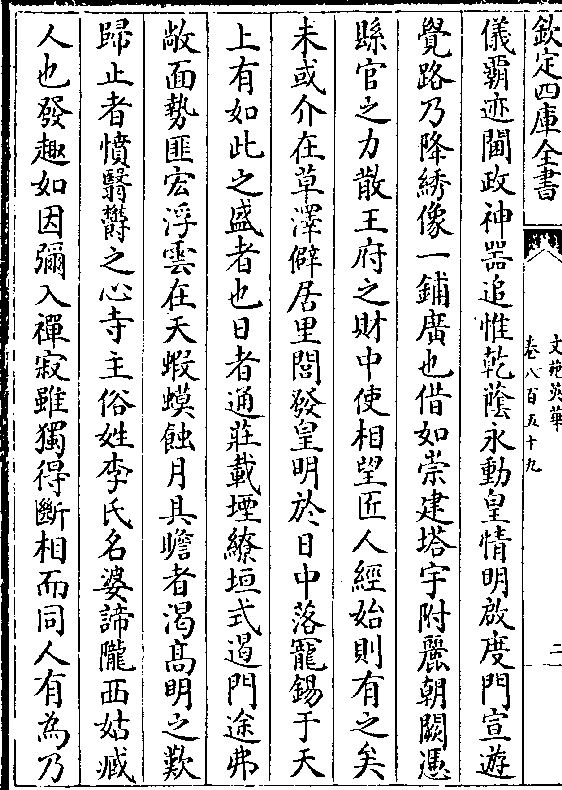 欽定四庫全書
文苑英華
卷八百五十九
二
儀霸迹閫政神器追惟乾蔭永動皇情明啟度門宣遊
覺路乃降綉像一鋪廣也借如崇建塔宇附麗朝闕憑
縣官之力散王府之財中使相望匠人經始則有之矣
未或介在草澤僻居里閭發皇明於日中落寵錫于天
上有如此之盛者也日者通莊載堙繚垣式遏門途弗
敞面勢匪宏浮雲在天蝦蟆蝕月具瞻者渴髙明之歎
歸止者憤翳欝之心寺主俗姓李氏名婆諦隴西姑臧
人也發趣如因彌入禪寂雖獨得斷相而同人有為乃